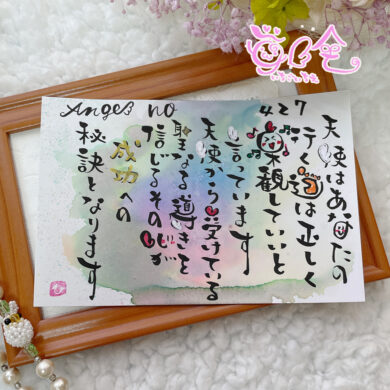 Angel no 427
天使はあなたの
行く道は正しく
楽観していいと
言っています
天使から受けている
聖なる導きを
信じるその心が
成功への
秘訣となります